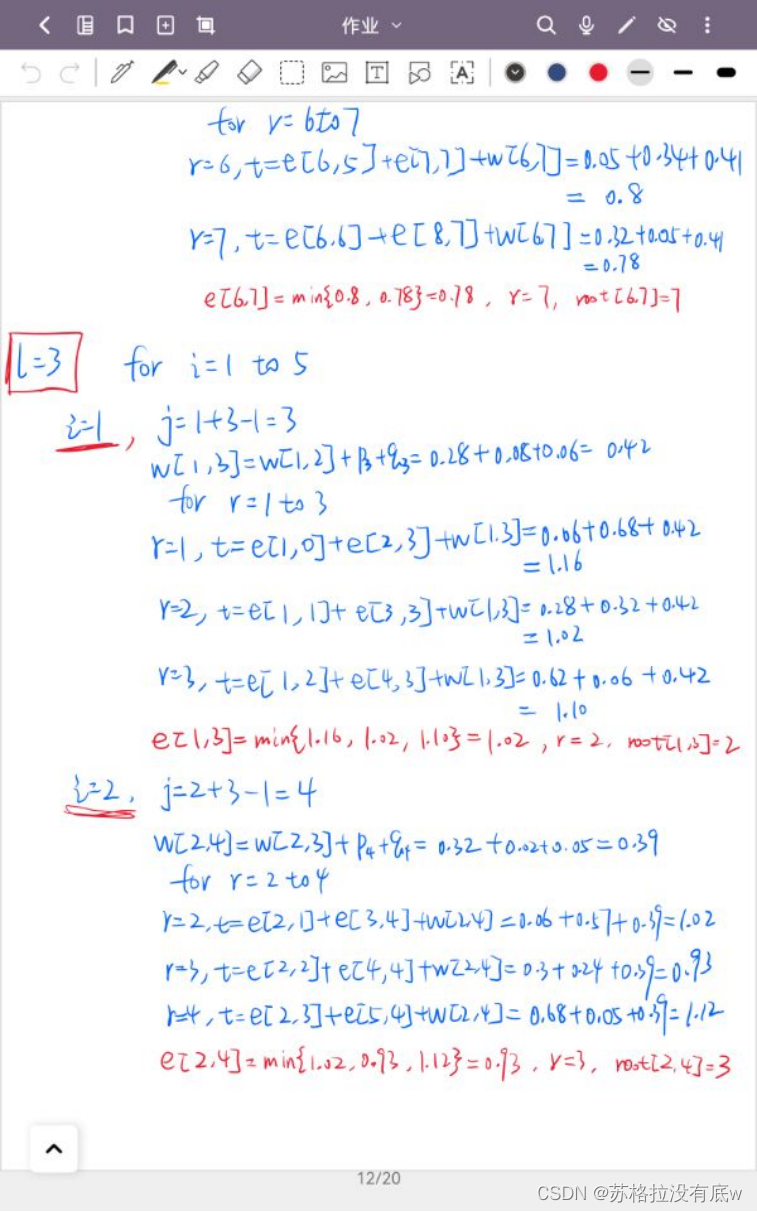 作业
for r=6 to 7
r=6, t=e[6,5]+e[7,7]+w[6,7]=0.05+0.34+0.41
= 0.8
r=7, t=e[6,6]+e[8,7]+w[6,7]=0.32+0.05+0.41
=0.78
e[6,7]=min{0.8, 0.78}=0.78, r=7, root[6,7]=7
l=3 for i=1 to 5
i=1, j=1+3-1=3
w[1,3]=w[1,2]+p3+q3=0.28+0.08+0.06=0.42
for r=1 to 3
r=1, t=e[1,0]+e[2,3]+w[1.3]=0.06+0.68+0.42
=1.16
r=2, t=e[1,1]+e[3,3]+w[1,3]=0.28+0.32+0.42
=1.02
r=3, t=e[1,2]+e[4,3]+w[1,3]=0.62+0.06+0.42
= 1.10
e[1,3]=min{1.16, 1.02, 1.10}=1.02, r=2, root[1,3]=2
i=2, j=2+3-1=4
w[2,4]=w[2,3]+p4+q4=0.32+0.02+0.05=0.39
for r=2 to 4
r=2, t=e[2,1]+e[3,4]+w[2,4]=0.06+0.57+0.39=1.02
r=3, t=e[2,2]+e[4,4]+w[2,4]=0.3+0.24+0.39=0.93
r=4, t=e[2,3]+e[5,4]+w[2,4]=0.68+0.05+0.39=1.12
e[2,4]=min{1.02, 0.93, 1.12}=0.93, r=3, root[2,4]=3
12/20
CSDN @苏格拉没有底w